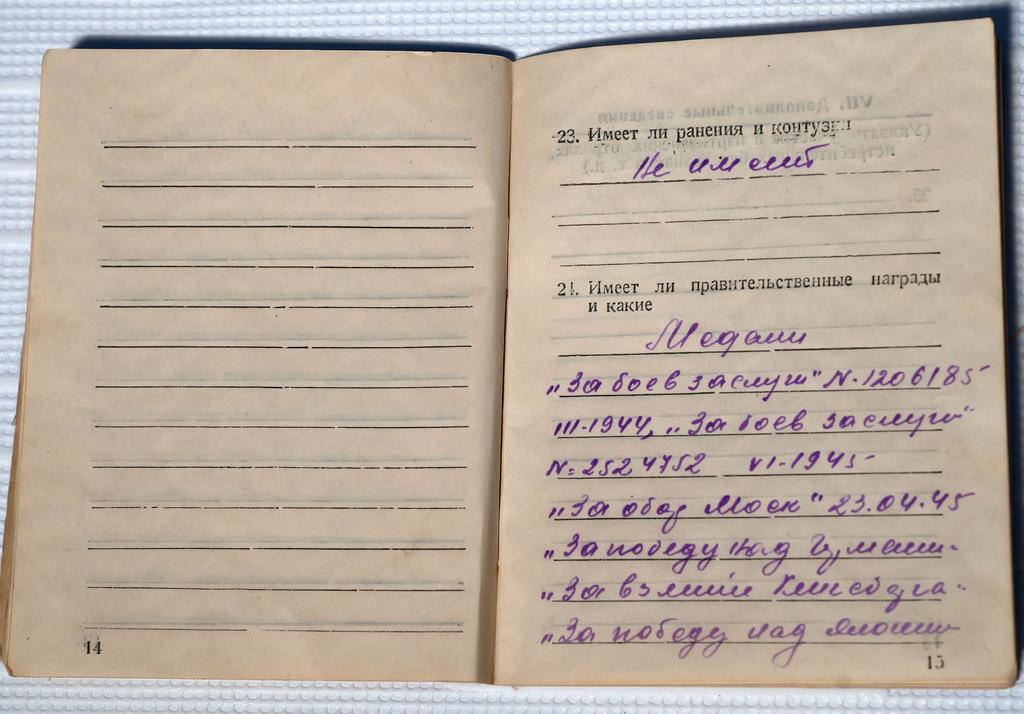 23. Имеет ли ранения и контузии
Не имеит
24. Имеет ли правительственные награды
и какие
Медали
„За боев заслуги" N-1206185
III-1944, „За боев заслуги"
N=2524752 VI-1945
„За обор Моск" 23.04.45
„За победу над Германи-
„За взятии Кенсберга-
„За победу над Японии
14
15